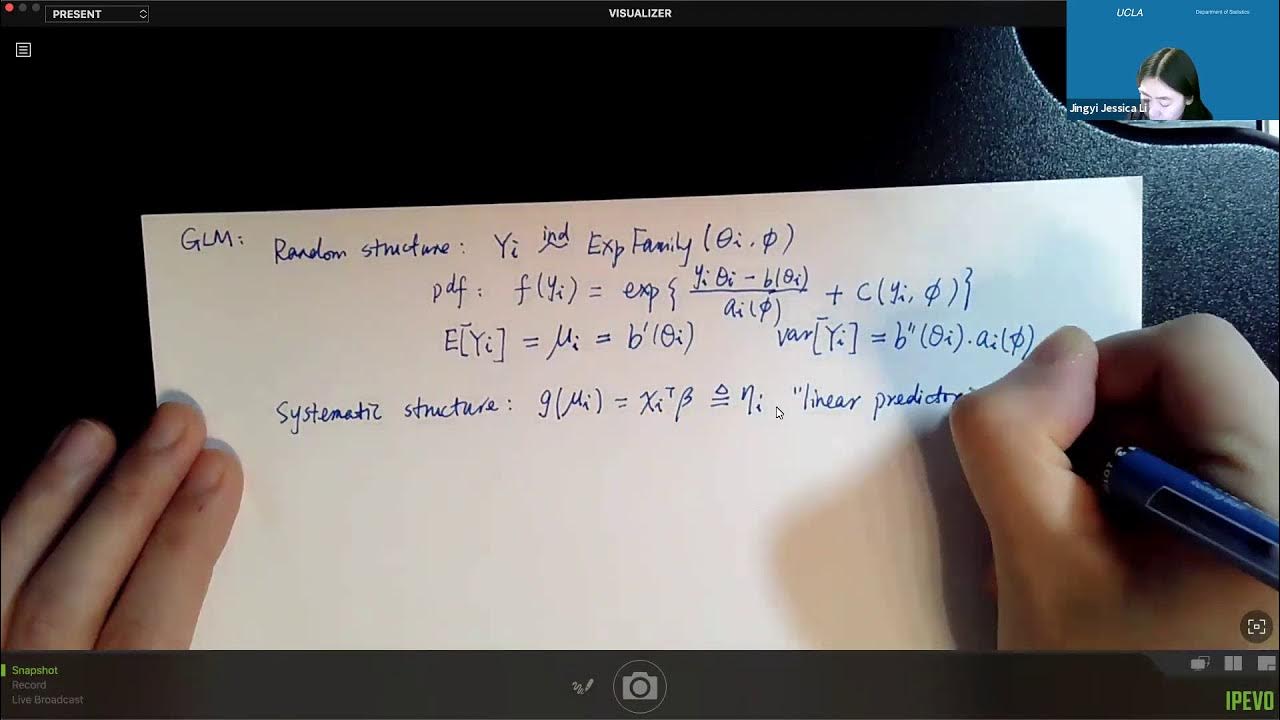 PRESENT
VISUALIZER
UCLA
Department of Statistics
Jingyi Jessica Li
GLM: Random structure: Yi ind~ Exp Family (θi, φ)
pdf: f(yi) = exp{ (yi θi − b(θi)) / ai(φ) + C(yi, φ)}
E[Yi] = μi = b′(θi) var[Yi] = b″(θi)·ai(φ)
Systematic structure: g(μi) = xiᵀβ ≜ ηi "linear predictor
Snapshot
Record
Live Broadcast
IPEVO